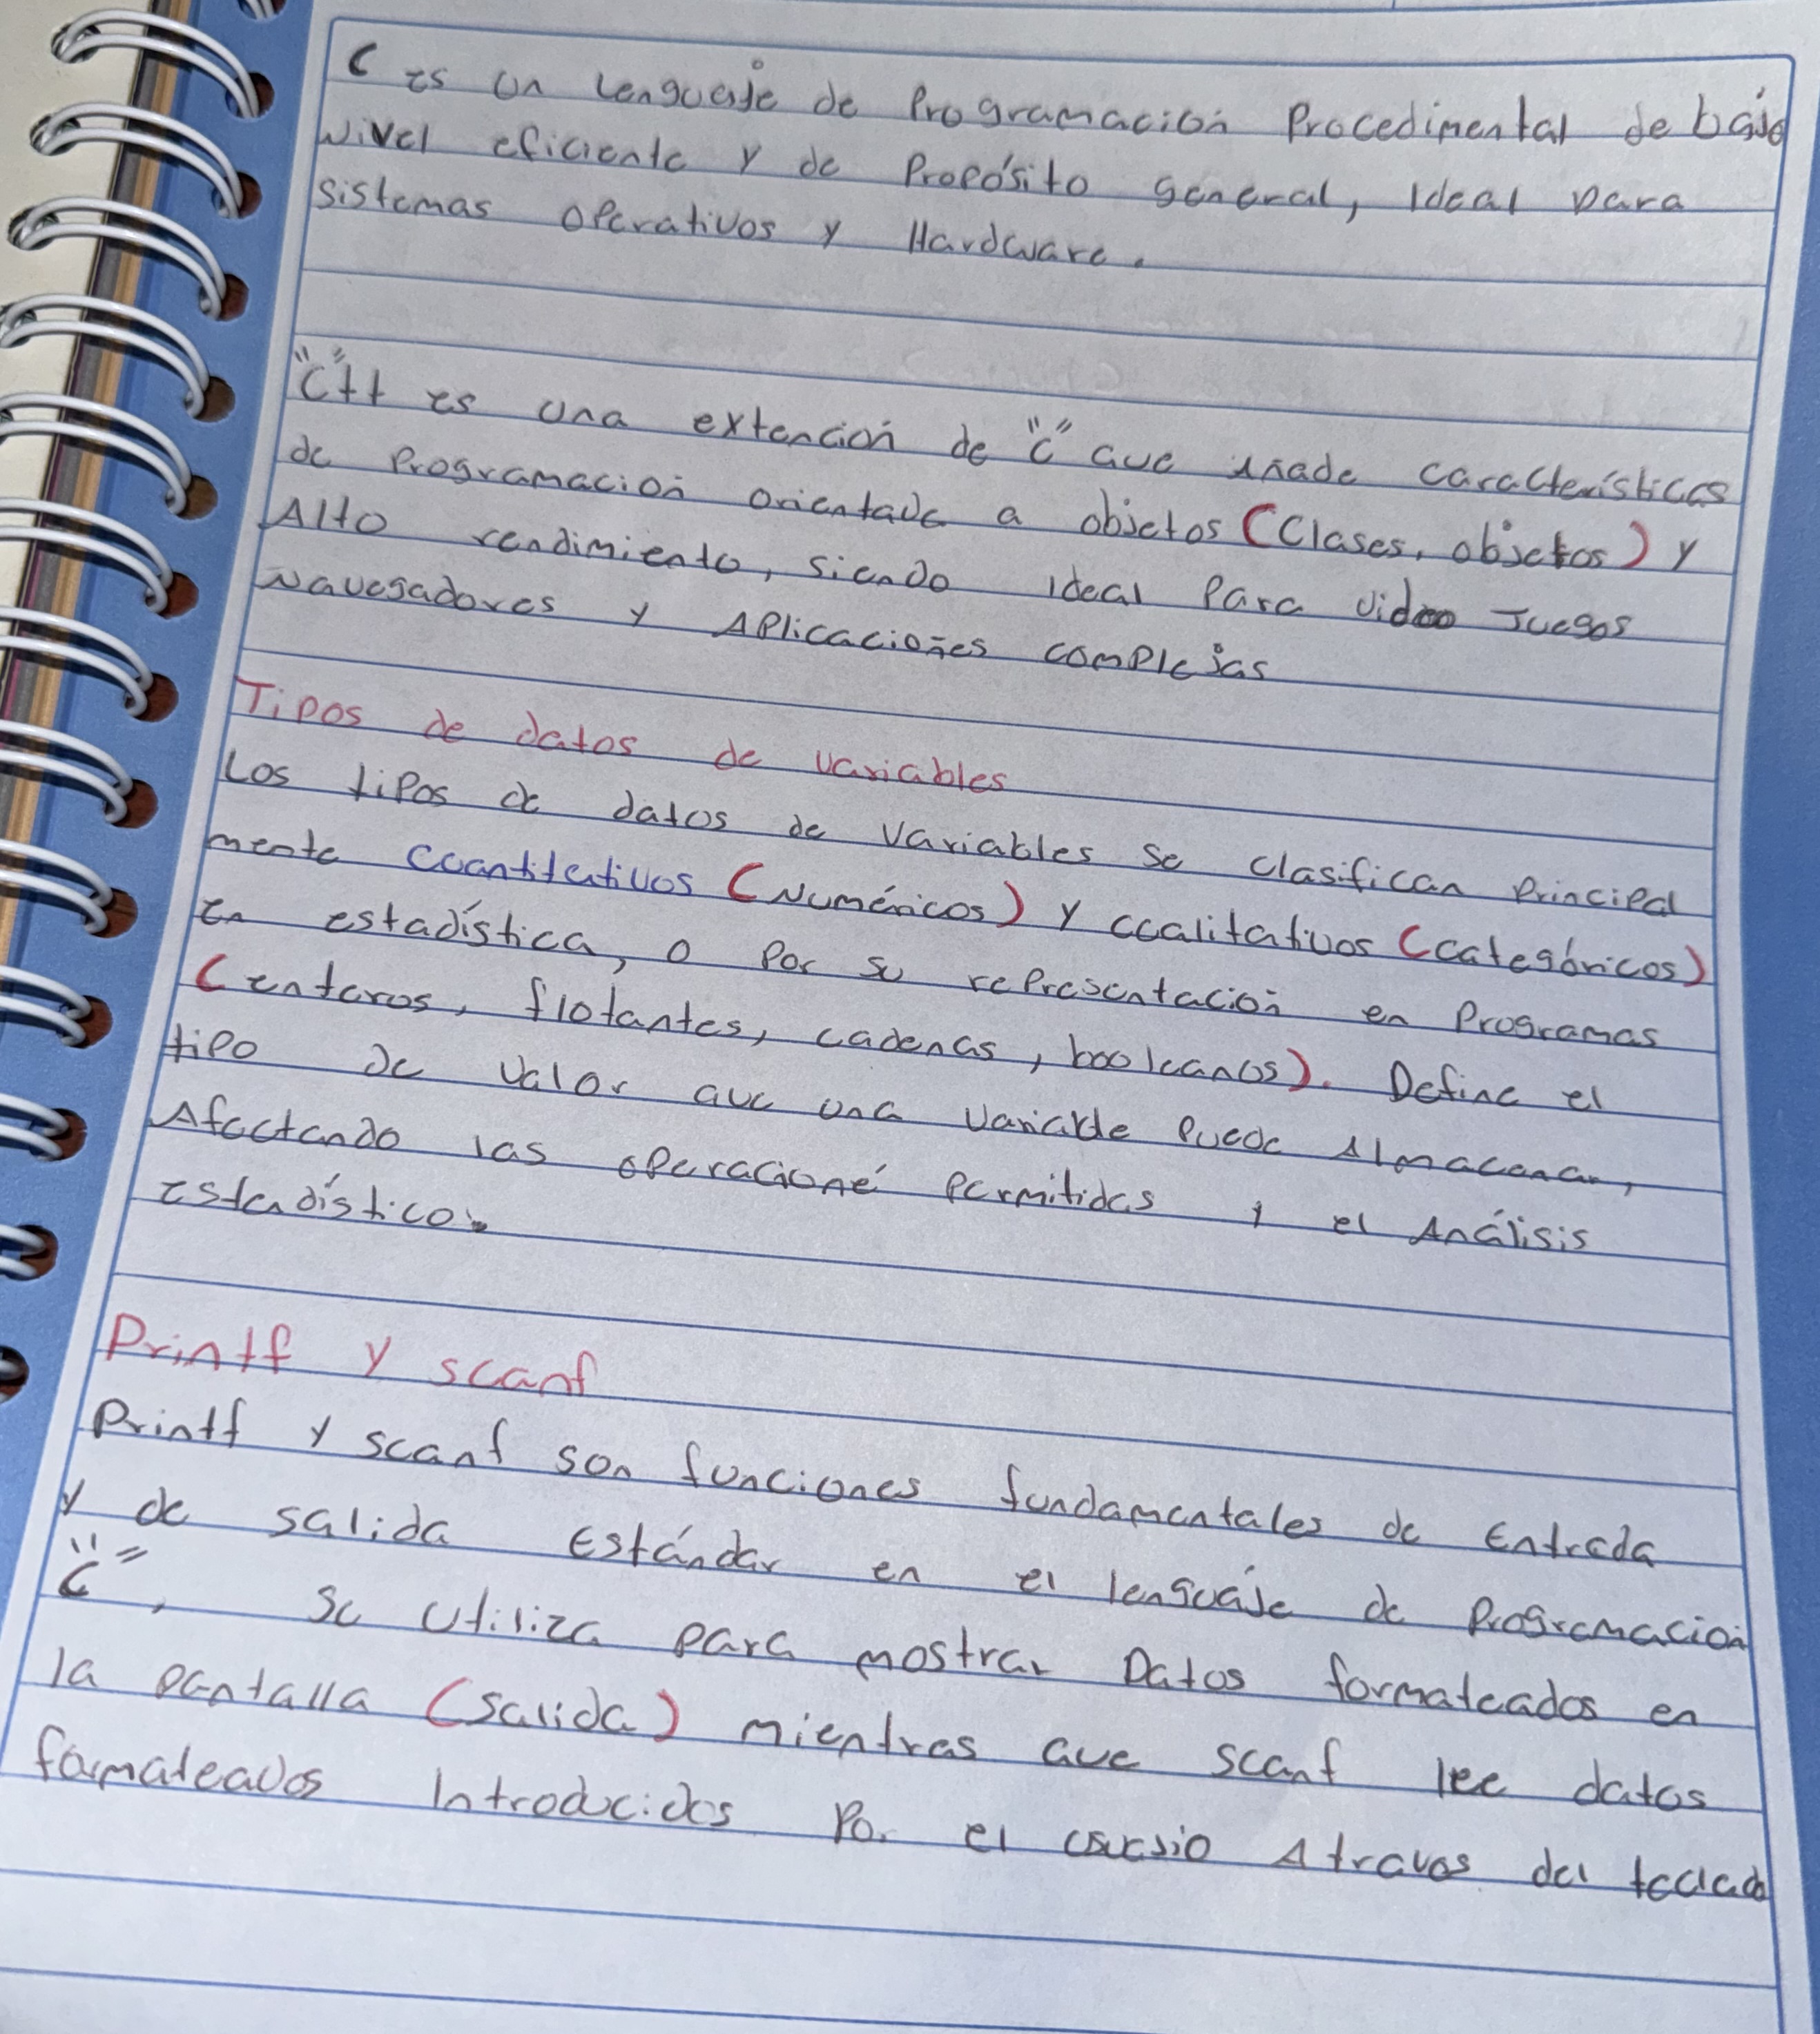 C es un Lenguaje de Programación Procedimental de bajo
Nivel eficiente y de Propósito general, Ideal para
sistemas operativos y Hardware.
"C"++ es una extención de "C" que añade características
de Programación orientada a objetos (Clases, objetos) y
Alto rendimiento, siendo Ideal Para video Juegos
Navegadores y Aplicaciones complejas
Tipos de datos de variables
Los tipos de datos de variables se clasifican Principal
mente cuantitativos (Numéricos) y cualitativos (categóricos)
en estadística, o Por su representación en Programas
(enteros, flotantes, cadenas, booleanos). Define el
tipo de valor que una variable Puede Almacenar,
Afectando las operacione permitidas y el Análisis
Estadístico.
Printf y scanf
Printf y scanf son funciones fundamentales de Entrada
y de salida Estándar en el lenguaje de Programación
"C", se utiliza para mostrar Datos formateados en
la pantalla (salida) mientras que scanf lee datos
formateados Introducidos Por el Atraves del teclado